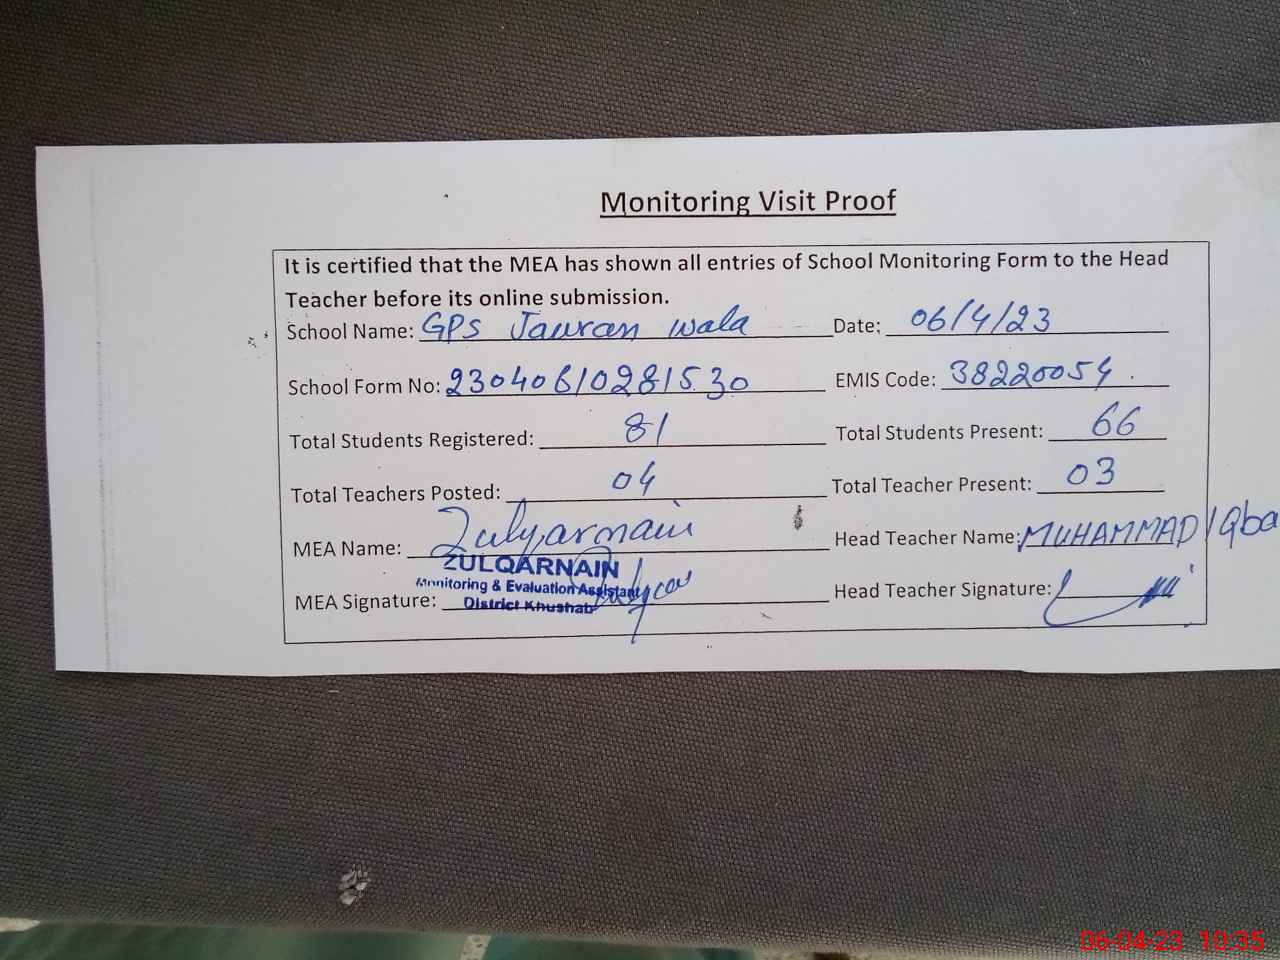 Monitoring Visit Proof
It is certified that the MEA has shown all entries of School Monitoring Form to the Head
Teacher before its online submission.
School Name: GPS Jawran wala Date: 06/4/23
School Form No: 23040610281530 EMIS Code: 38220054
Total Students Registered: 81 Total Students Present: 66
Total Teachers Posted: 04 Total Teacher Present: 03
MEA Name: Zulqarnain Head Teacher Name: MUHAMMAD Iqba
ZULQARNAIN
Monitoring & Evaluation Assistant
District Khushab
MEA Signature: Head Teacher Signature:
06-04-23 10:35